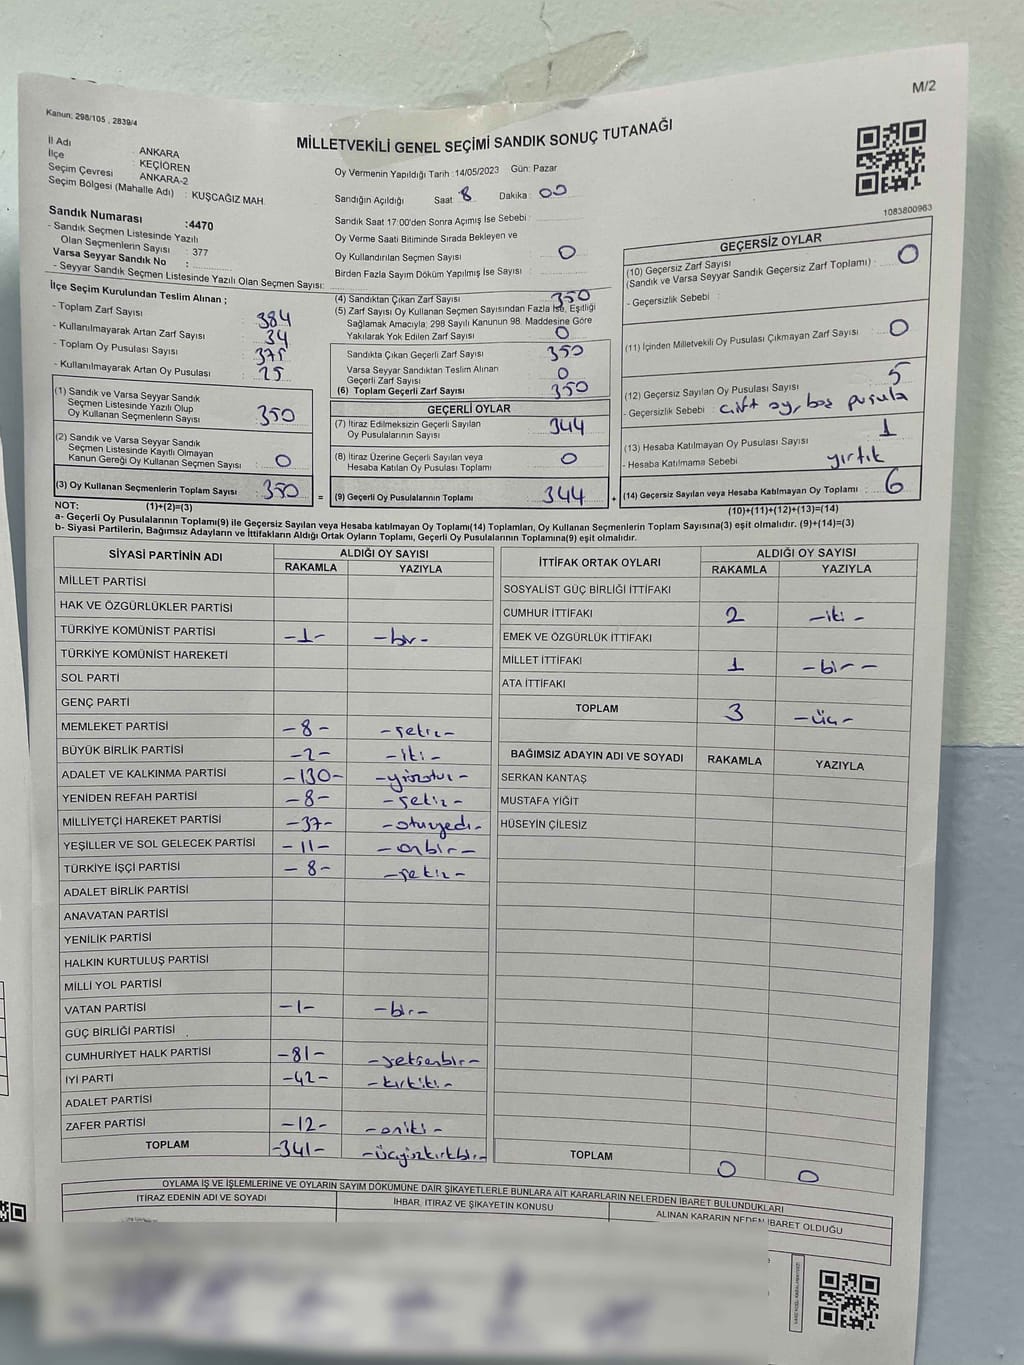 M/2
Kanun: 298/105 , 2839/4
MİLLETVEKİLİ GENEL SEÇİMİ SANDIK SONUÇ TUTANAĞI
İl Adı : ANKARA
İlçe : KEÇİÖREN
Seçim Çevresi : ANKARA-2
Seçim Bölgesi (Mahalle Adı) : KUŞCAĞIZ MAH.
Sandık Numarası :4470
- Sandık Seçmen Listesinde Yazılı
Olan Seçmenlerin Sayısı : 377
Varsa Seyyar Sandık No :
- Seyyar Sandık Seçmen Listesinde Yazılı Olan Seçmen Sayısı:
Oy Vermenin Yapıldığı Tarih :14/05/2023 Gün: Pazar
Sandığın Açıldığı Saat 8 Dakika : 00
Sandık Saat 17:00'den Sonra Açımış İse Sebebi :
Oy Verme Saati Bitiminde Sırada Bekleyen ve
Oy Kullandırılan Seçmen Sayısı : 0
Birden Fazla Sayım Döküm Yapılmış İse Sayısı :
1083800963
İlçe Seçim Kurulundan Teslim Alınan ;
- Toplam Zarf Sayısı : 384
- Kullanılmayarak Artan Zarf Sayısı : 34
- Toplam Oy Pusulası Sayısı : 375
- Kullanılmayarak Artan Oy Pusulası : 25
(1) Sandık ve Varsa Seyyar Sandık
Seçmen Listesinde Yazılı Olup
Oy Kullanan Seçmenlerin Sayısı : 350
(2) Sandık ve Varsa Seyyar Sandık
Seçmen Listesinde Kayıtlı Olmayan
Kanun Gereği Oy Kullanan Seçmen Sayısı : 0
(3) Oy Kullanan Seçmenlerin Toplam Sayısı : 350
(4) Sandıktan Çıkan Zarf Sayısı : 350
(5) Zarf Sayısı Oy Kullanan Seçmen Sayısından Fazla İse, Eşitliği
Sağlamak Amacıyla; 298 Sayılı Kanunun 98. Maddesine Göre
Yakılarak Yok Edilen Zarf Sayısı : 0
Sandıkta Çıkan Geçerli Zarf Sayısı : 350
Varsa Seyyar Sandıktan Teslim Alınan
Geçerli Zarf Sayısı : 0
(6) Toplam Geçerli Zarf Sayısı : 350
GEÇERLİ OYLAR
(7) İtiraz Edilmeksizin Geçerli Sayılan
Oy Pusulalarının Sayısı : 344
(8) İtiraz Üzerine Geçerli Sayılan veya
Hesaba Katılan Oy Pusulası Toplamı : 0
= (9) Geçerli Oy Pusulalarının Toplamı : 344
GEÇERSİZ OYLAR
(10) Geçersiz Zarf Sayısı
(Sandık ve Varsa Seyyar Sandık Geçersiz Zarf Toplamı) : 0
- Geçersizlik Sebebi :
(11) İçinden Milletvekili Oy Pusulası Çıkmayan Zarf Sayısı : 0
(12) Geçersiz Sayılan Oy Pusulası Sayısı : 5
- Geçersizlik Sebebi : çift oy, boş pusula
(13) Hesaba Katılmayan Oy Pusulası Sayısı : 1
- Hesaba Katılmama Sebebi yırtık
(14) Geçersiz Sayılan veya Hesaba Katılmayan Oy Toplamı : 6
NOT: (1)+(2)=(3) (10)+(11)+(12)+(13)=(14)
a- Geçerli Oy Pusulalarının Toplamı(9) ile Geçersiz Sayılan veya Hesaba katılmayan Oy Toplamı(14) Toplamları, Oy Kullanan Seçmenlerin Toplam Sayısına(3) eşit olmalıdır. (9)+(14)=(3)
b- Siyasi Partilerin, Bağımsız Adayların ve İttifakların Aldığı Ortak Oyların Toplamı, Geçerli Oy Pusulalarının Toplamına(9) eşit olmalıdır.
SİYASİ PARTİNİN ADI ALDIĞI OY SAYISI
RAKAMLA YAZIYLA
MİLLET PARTİSİ
HAK VE ÖZGÜRLÜKLER PARTİSİ
TÜRKİYE KOMÜNİST PARTİSİ -1- -bir-
TÜRKİYE KOMÜNİST HAREKETİ
SOL PARTİ
GENÇ PARTİ
MEMLEKET PARTİSİ -8- -sekiz-
BÜYÜK BİRLİK PARTİSİ -2- -iki-
ADALET VE KALKINMA PARTİSİ -130- -yüzotuz-
YENİDEN REFAH PARTİSİ -8- -sekiz-
MİLLİYETÇİ HAREKET PARTİSİ -37- -otuzyedi-
YEŞİLLER VE SOL GELECEK PARTİSİ -11- -onbir-
TÜRKİYE İŞÇİ PARTİSİ -8- -sekiz-
ADALET BİRLİK PARTİSİ
ANAVATAN PARTİSİ
YENİLİK PARTİSİ
HALKIN KURTULUŞ PARTİSİ
MİLLİ YOL PARTİSİ
VATAN PARTİSİ -1- -bir-
GÜÇ BİRLİĞİ PARTİSİ
CUMHURİYET HALK PARTİSİ -81- -seksenbir-
İYİ PARTİ -42- -kırkiki-
ADALET PARTİSİ
ZAFER PARTİSİ -12- -oniki-
TOPLAM -341- -üçyüzkırkbir-
İTTİFAK ORTAK OYLARI ALDIĞI OY SAYISI
RAKAMLA YAZIYLA
SOSYALİST GÜÇ BİRLİĞİ İTTİFAKI
CUMHUR İTTİFAKI 2 -iki-
EMEK VE ÖZGÜRLÜK İTTİFAKI
MİLLET İTTİFAKI 1 -bir-
ATA İTTİFAKI
TOPLAM 3 -üç-
BAĞIMSIZ ADAYIN ADI VE SOYADI RAKAMLA YAZIYLA
SERKAN KANTAŞ
MUSTAFA YİĞİT
HÜSEYİN ÇİLESİZ
TOPLAM 0 0
OYLAMA İŞ VE İŞLEMLERİNE VE OYLARIN SAYIM DÖKÜMÜNE DAİR ŞİKAYETLERLE BUNLARA AİT KARARLARIN NELERDEN İBARET BULUNDUKLARI
İTİRAZ EDENİN ADI VE SOYADI İHBAR, İTİRAZ VE ŞİKAYETİN KONUSU ALINAN KARARIN NEDEN İBARET OLDUĞU